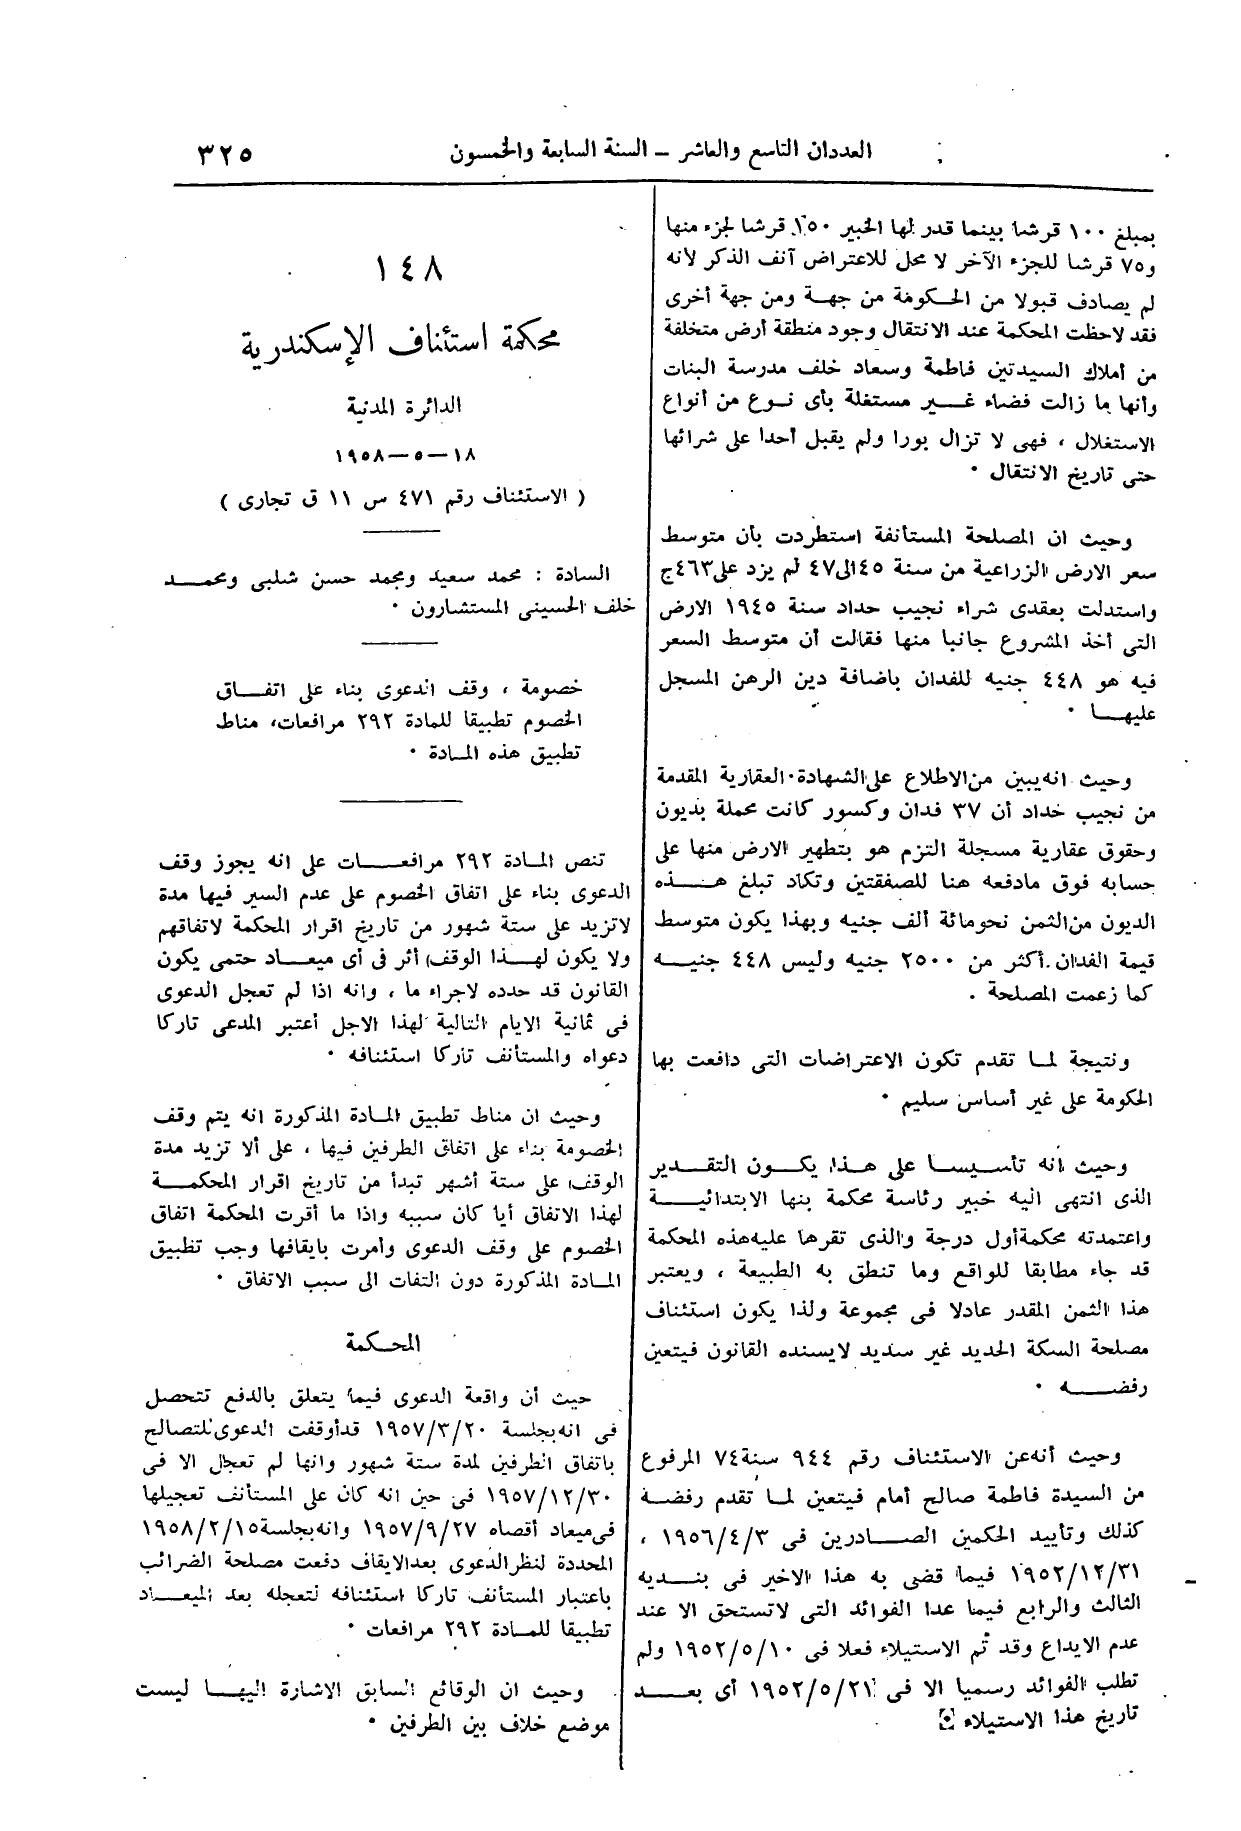 العددان التاسع والعاشر – السنة السابعة والخمسون
٣٢٥
بمبلغ ١٠٠ قرشا بينما قدر لها الخبير ١٥٠ قرشا لجزء منها
و٧٥ قرشا للجزء الآخر لا محل للاعتراض آنف الذكر لانه
لم يصادف قبولا من الحكومة من جهة ومن جهة أخرى
فقد لاحظت المحكمة عند الانتقال وجود منطقة أرض متخلفة
من أملاك السيدتين فاطمة وسعاد خلف مدرسة البنات
وأنها ما زالت فضاء غير مستغلة بأى نوع من أنواع
الاستغلال ، فهى لا تزال بورا ولم يقبل أحدا على شرائها
حتى تاريخ الانتقال .
وحيث ان المصلحة المستأنفة استطردت بأن متوسط
سعر الارض الزراعية من سنة ٤٥الى٤٧ لم يزد على٤٦٣ج
واستدلت بعقدى شراء نجيب حداد سنة ١٩٤٥ الارض
التى أخذ المشروع جانبا منها فقالت أن متوسط السعر
فيه هو ٤٤٨ جنيه للفدان باضافة دين الرهن المسجل
عليها .
وحيث انه يبين من الاطلاع على الشهادة العقارية المقدمة
من نجيب حداد أن ٣٧ فدان وكسور كانت محملة بديون
وحقوق عقارية مسجلة التزم هو بتطهير الارض منها على
حسابه فوق مادفعه هنا للصفقتين وتكاد تبلغ هذه
الديون من الثمن نحومائة ألف جنيه وبهذا يكون متوسط
قيمة الفدان أكثر من ٢٥٠٠ جنيه وليس ٤٤٨ جنيه
كما زعمت المصلحة .
ونتيجة لما تقدم تكون الاعتراضات التى دافعت بها
الحكومة على غير أساس سليم .
وحيث أنه تأسيسا على هذا يكون التقدير
الذى انتهى اليه خبير رئاسة محكمة بنها الابتدائية
واعتمدته محكمة أول درجة والذى تقرها عليه هذه المحكمة
قد جاء مطابقا للواقع وما تنطق به الطبيعة ، ويعتبر
هذا الثمن المقدر عادلا فى مجموعة ولذا يكون استئناف
مصلحة السكة الحديد غير سديد لايسنده القانون فيتعين
رفضه .
وحيث أنه عن الاستئناف رقم ٩٤٤ سنة٧٤ المرفوع
من السيدة فاطمة صالح أمام فيتعين لما تقدم رفضة
كذلك وتأييد الحكمين الصادرين فى ١٩٥٦/٤/٣ ،
١٩٥٢/١٢/٣١ فيما قضى به هذا الاخير فى بنديه
الثالث والرابع فيما عدا الفوائد التى لاتستحق الا عند
عدم الايداع وقد تم الاستيلاء فعلا فى ١٩٥٢/٥/١٠ ولم
تطلب الفوائد رسميا الا فى ١٩٥٢/٥/٢١ أى بعد
تاريخ هذا الاستيلاء .
١٤٨
محكمة استئناف الإسكندرية
الدائرة المدنية
١٨–٥–١٩٥٨
( الاستئناف رقم ٤٧١ س ١١ ق تجارى )
السادة : محمد سعيد ومحمد حسن شلبى ومحمد
خلف الحسينى المستشارون .
خصومة ، وقف الدعوى بناء على اتفاق
الخصوم تطبيقا للمادة ٢٩٢ مرافعات، مناط
تطبيق هذه المادة .
تنص المادة ٢٩٢ مرافعات على انه يجوز وقف
الدعوى بناء على اتفاق الخصوم على عدم السير فيها مدة
لاتزيد على ستة شهور من تاريخ اقرار المحكمة لاتفاقهم
ولا يكون لهذا الوقف أثر فى أى ميعاد حتمى يكون
القانون قد حدده لاجراء ما ، وانه اذا لم تعجل الدعوى
فى ثمانية الايام التالية لهذا الاجل أعتبر المدعى تاركا
دعواه والمستأنف تاركا استئنافه .
وحيث ان مناط تطبيق المادة المذكورة انه يتم وقف
الخصومة بناء على اتفاق الطرفين فيها ، على ألا تزيد مدة
الوقف على ستة أشهر تبدأ من تاريخ اقرار المحكمة
لهذا الاتفاق أيا كان سببه واذا ما أقرت المحكمة اتفاق
الخصوم على وقف الدعوى وأمرت بايقافها وجب تطبيق
المادة المذكورة دون التفات الى سبب الاتفاق .
المحكمة
حيث أن واقعة الدعوى فيما يتعلق بالدفع تتحصل
فى انه بجلسة ١٩٥٧/٣/٢٠ قدأوقفت الدعوى للتصالح
باتفاق الطرفين لمدة ستة شهور وانها لم تعجال الا فى
١٩٥٧/١٢/٣٠ فى حين انه كان على المستأنف تعجيلها
فى ميعاد أقصاه ١٩٥٧/٩/٢٧ وانه بجلسة ١٩٥٨/٢/١٥
المحددة لنظر الدعوى بعد الايقاف دفعت مصلحة الضرائب
باعتبار المستأنف تاركا استئنافه لتعجله بعد الميعاد
تطبيقا للمادة ٢٩٢ مرافعات .
وحيث ان الوقائع السابق الاشارة اليها ليست
موضع خلاف بين الطرفين .